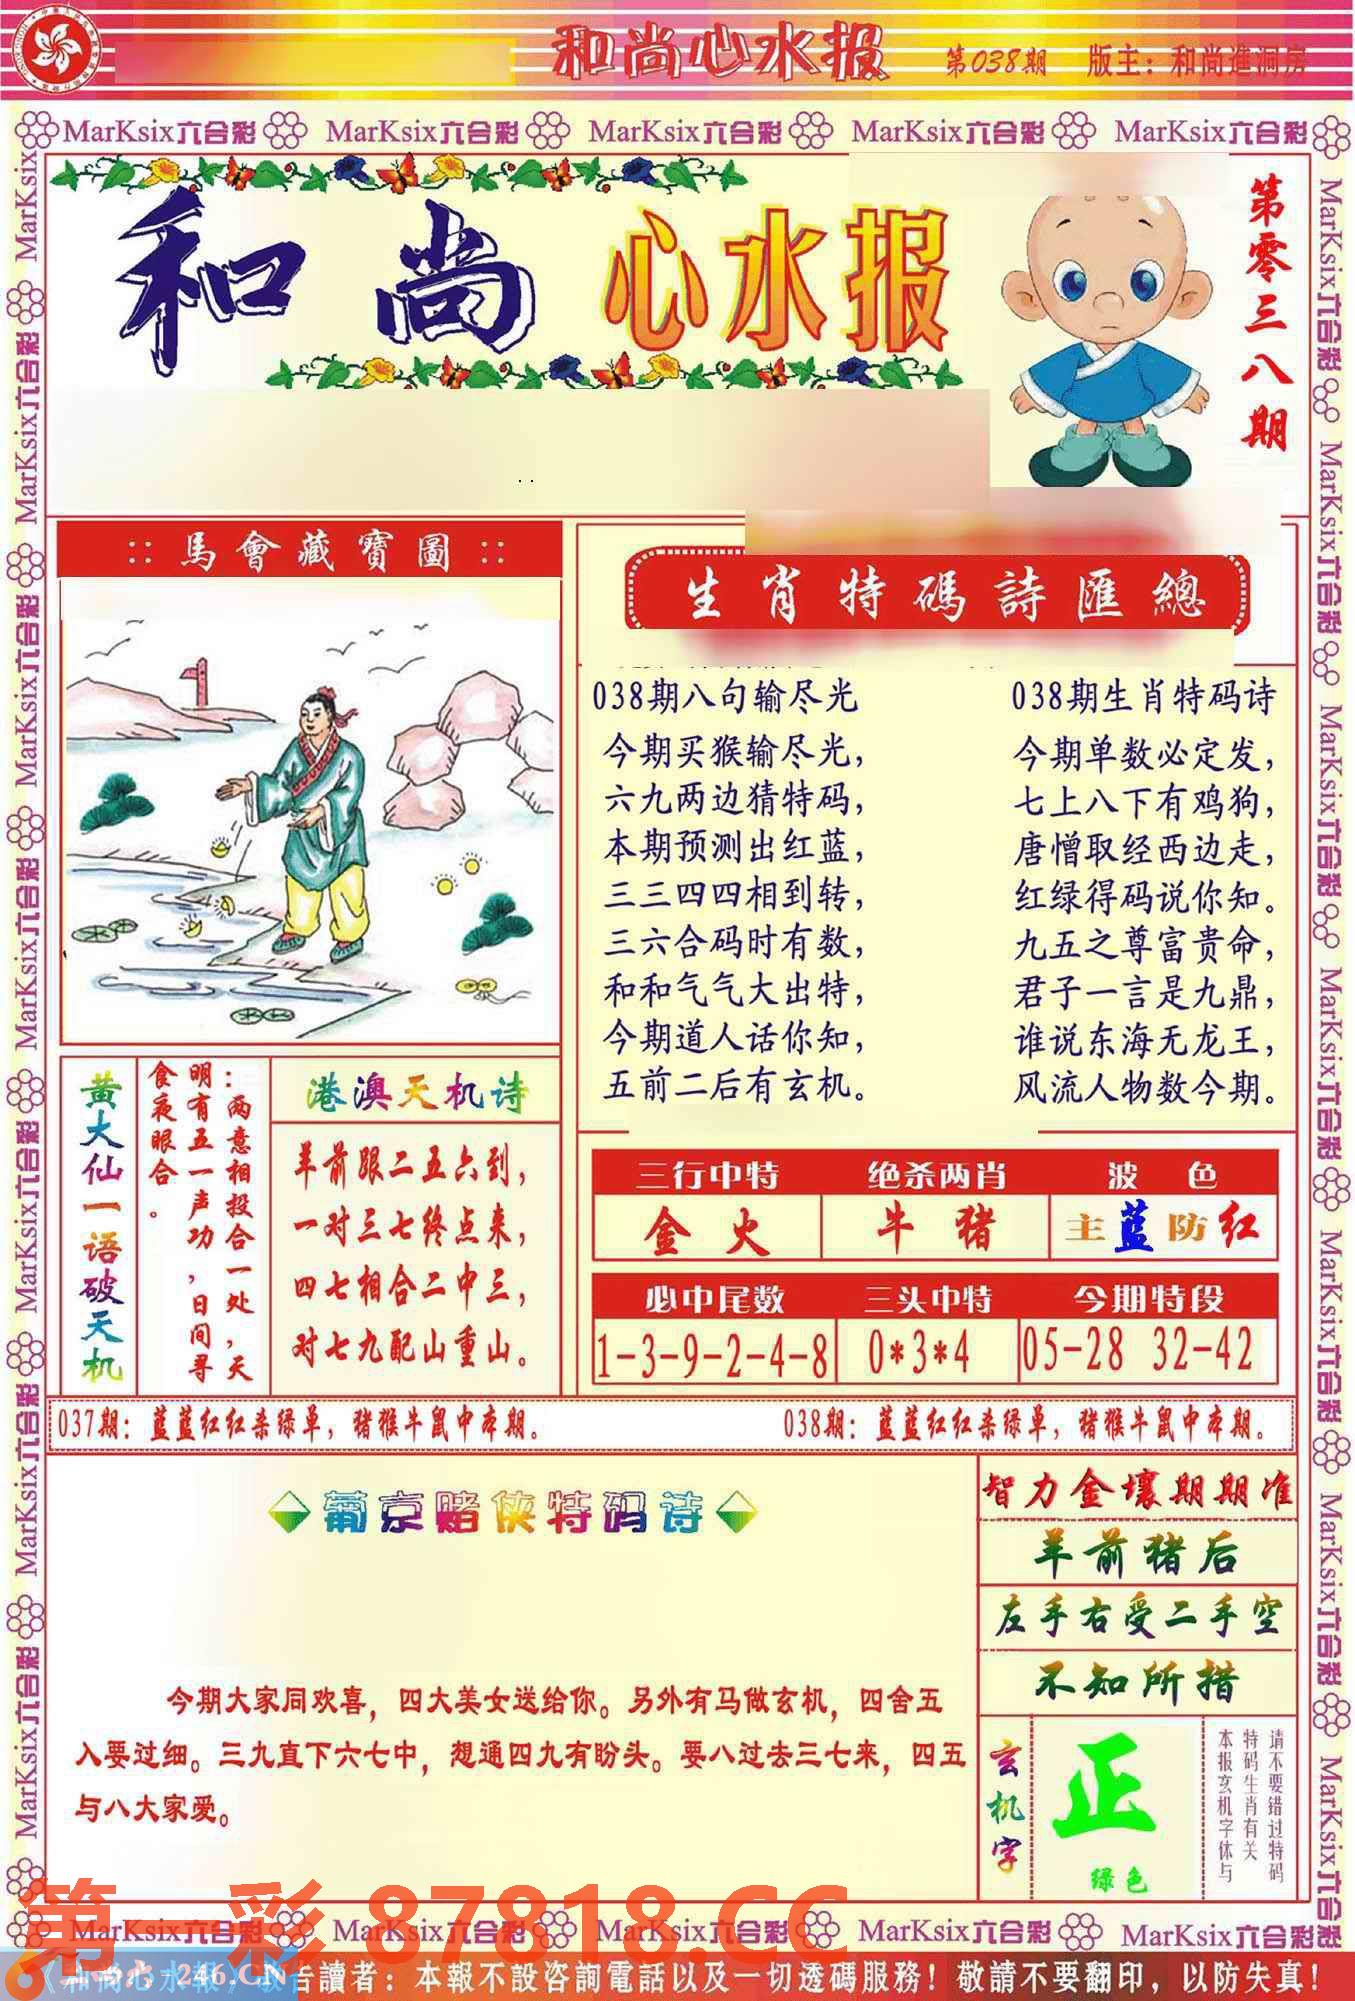 和尚心水报 第038期 版主：和尚進洞房
MarKsix六合彩 MarKsix六合彩 MarKsix六合彩 MarKsix六合彩 MarKsix六合彩
和尚心水报
第零三八期
::馬會藏寶圖::
生肖特碼詩匯總
038期八句输尽光
今期买猴输尽光，
六九两边猜特码，
本期预测出红蓝，
三三四四相到转，
三六合码时有数，
和和气气大出特，
今期道人话你知，
五前二后有玄机。
038期生肖特码诗
今期单数必定发，
七上八下有鸡狗，
唐憎取经西边走，
红绿得码说你知。
九五之尊富贵命，
君子一言是九鼎，
谁说东海无龙王，
风流人物数今期。
黄大仙一语破天机
：两意相投合一处，天
明有五一声功，日间寻
食夜眼合。
港澳天机诗
羊前跟二五六到，
一对三七终点来，
四七相合二中三，
对七九配山重山。
三行中特 绝杀两肖 波色
金火 牛猪 主蓝防红
必中尾数 三头中特 今期特段
1-3-9-2-4-8 0*3*4 05-28 32-42
037期：蓝蓝红红杀绿单，猪猴牛鼠中本期。 038期：蓝蓝红红杀绿单，猪猴牛鼠中本期。
葡京赌侠特码诗
今期大家同欢喜，四大美女送给你。另外有马做玄机，四舍五
入要过细。三九直下六七中，想通四九有盼头。要八过去三七来，四五
与八大家爱。
智力金壤期期准
羊前猪后
左手右受二手空
不知所措
玄机字
正
绿色
请不要错过特码
特码生肖有关
本报玄机字体与
第一彩 87818.CC
MarKsix六合彩 MarKsix六合彩 MarKsix六合彩 MarKsix六合彩 MarKsix六合彩
246.CN
告讀者：本報不設咨詢電話以及一切透碼服務！敬請不要翻印，以防失真！